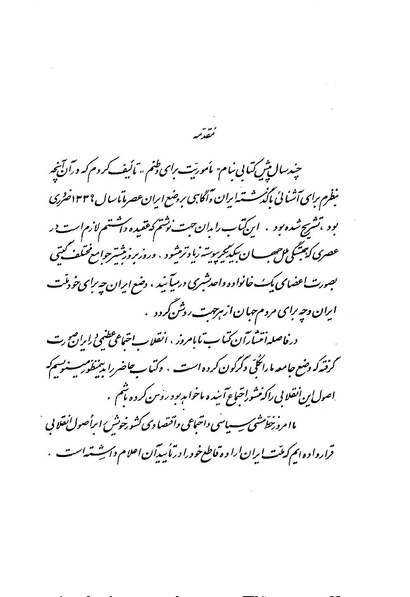 مقدمه
چند سال پیش کتابی بنام «مأموریت برای وطنم» تألیف کردم که در آن آنچه
بنظرم برای آشنائی با گذشته ایران و آگاهی بر وضع ایران عصر ما تا سال ۱۳۳۹ ضروری
بود، تشریح شده بود. این کتاب را بدان جهت نوشتم که عقیده داشتم لازم است در
عصری که همبستگی ملل جهان بیکدیگر پیوسته زیادتر میشود، و روز بروز بیشتر جوامع مختلف گیتی
بصورت اعضای یک خانواده واحد بشری در میآیند، وضع ایران چه برای خود ملت
ایران و چه برای مردم جهان از هر جهت روشن گردد.
در فاصله انتشار آن کتاب تا بامروز، انقلاب اجتماعی عظیمی در ایران صورت
گرفته که وضع جامعه ما را بکلی دگرگون کرده است. و کتاب حاضر را بدین منظور مینویسم که
اصول این انقلابی را که منشور اجتماع آینده ما خواهد بود روشن کرده باشم.
ما امروز خط مشی سیاسی و اجتماعی و اقتصادی کشور خویش را بر اصول انقلابی
قرار داده ایم که ملت ایران اراده قاطع خود را در تأیید آن اعلام داشته است.